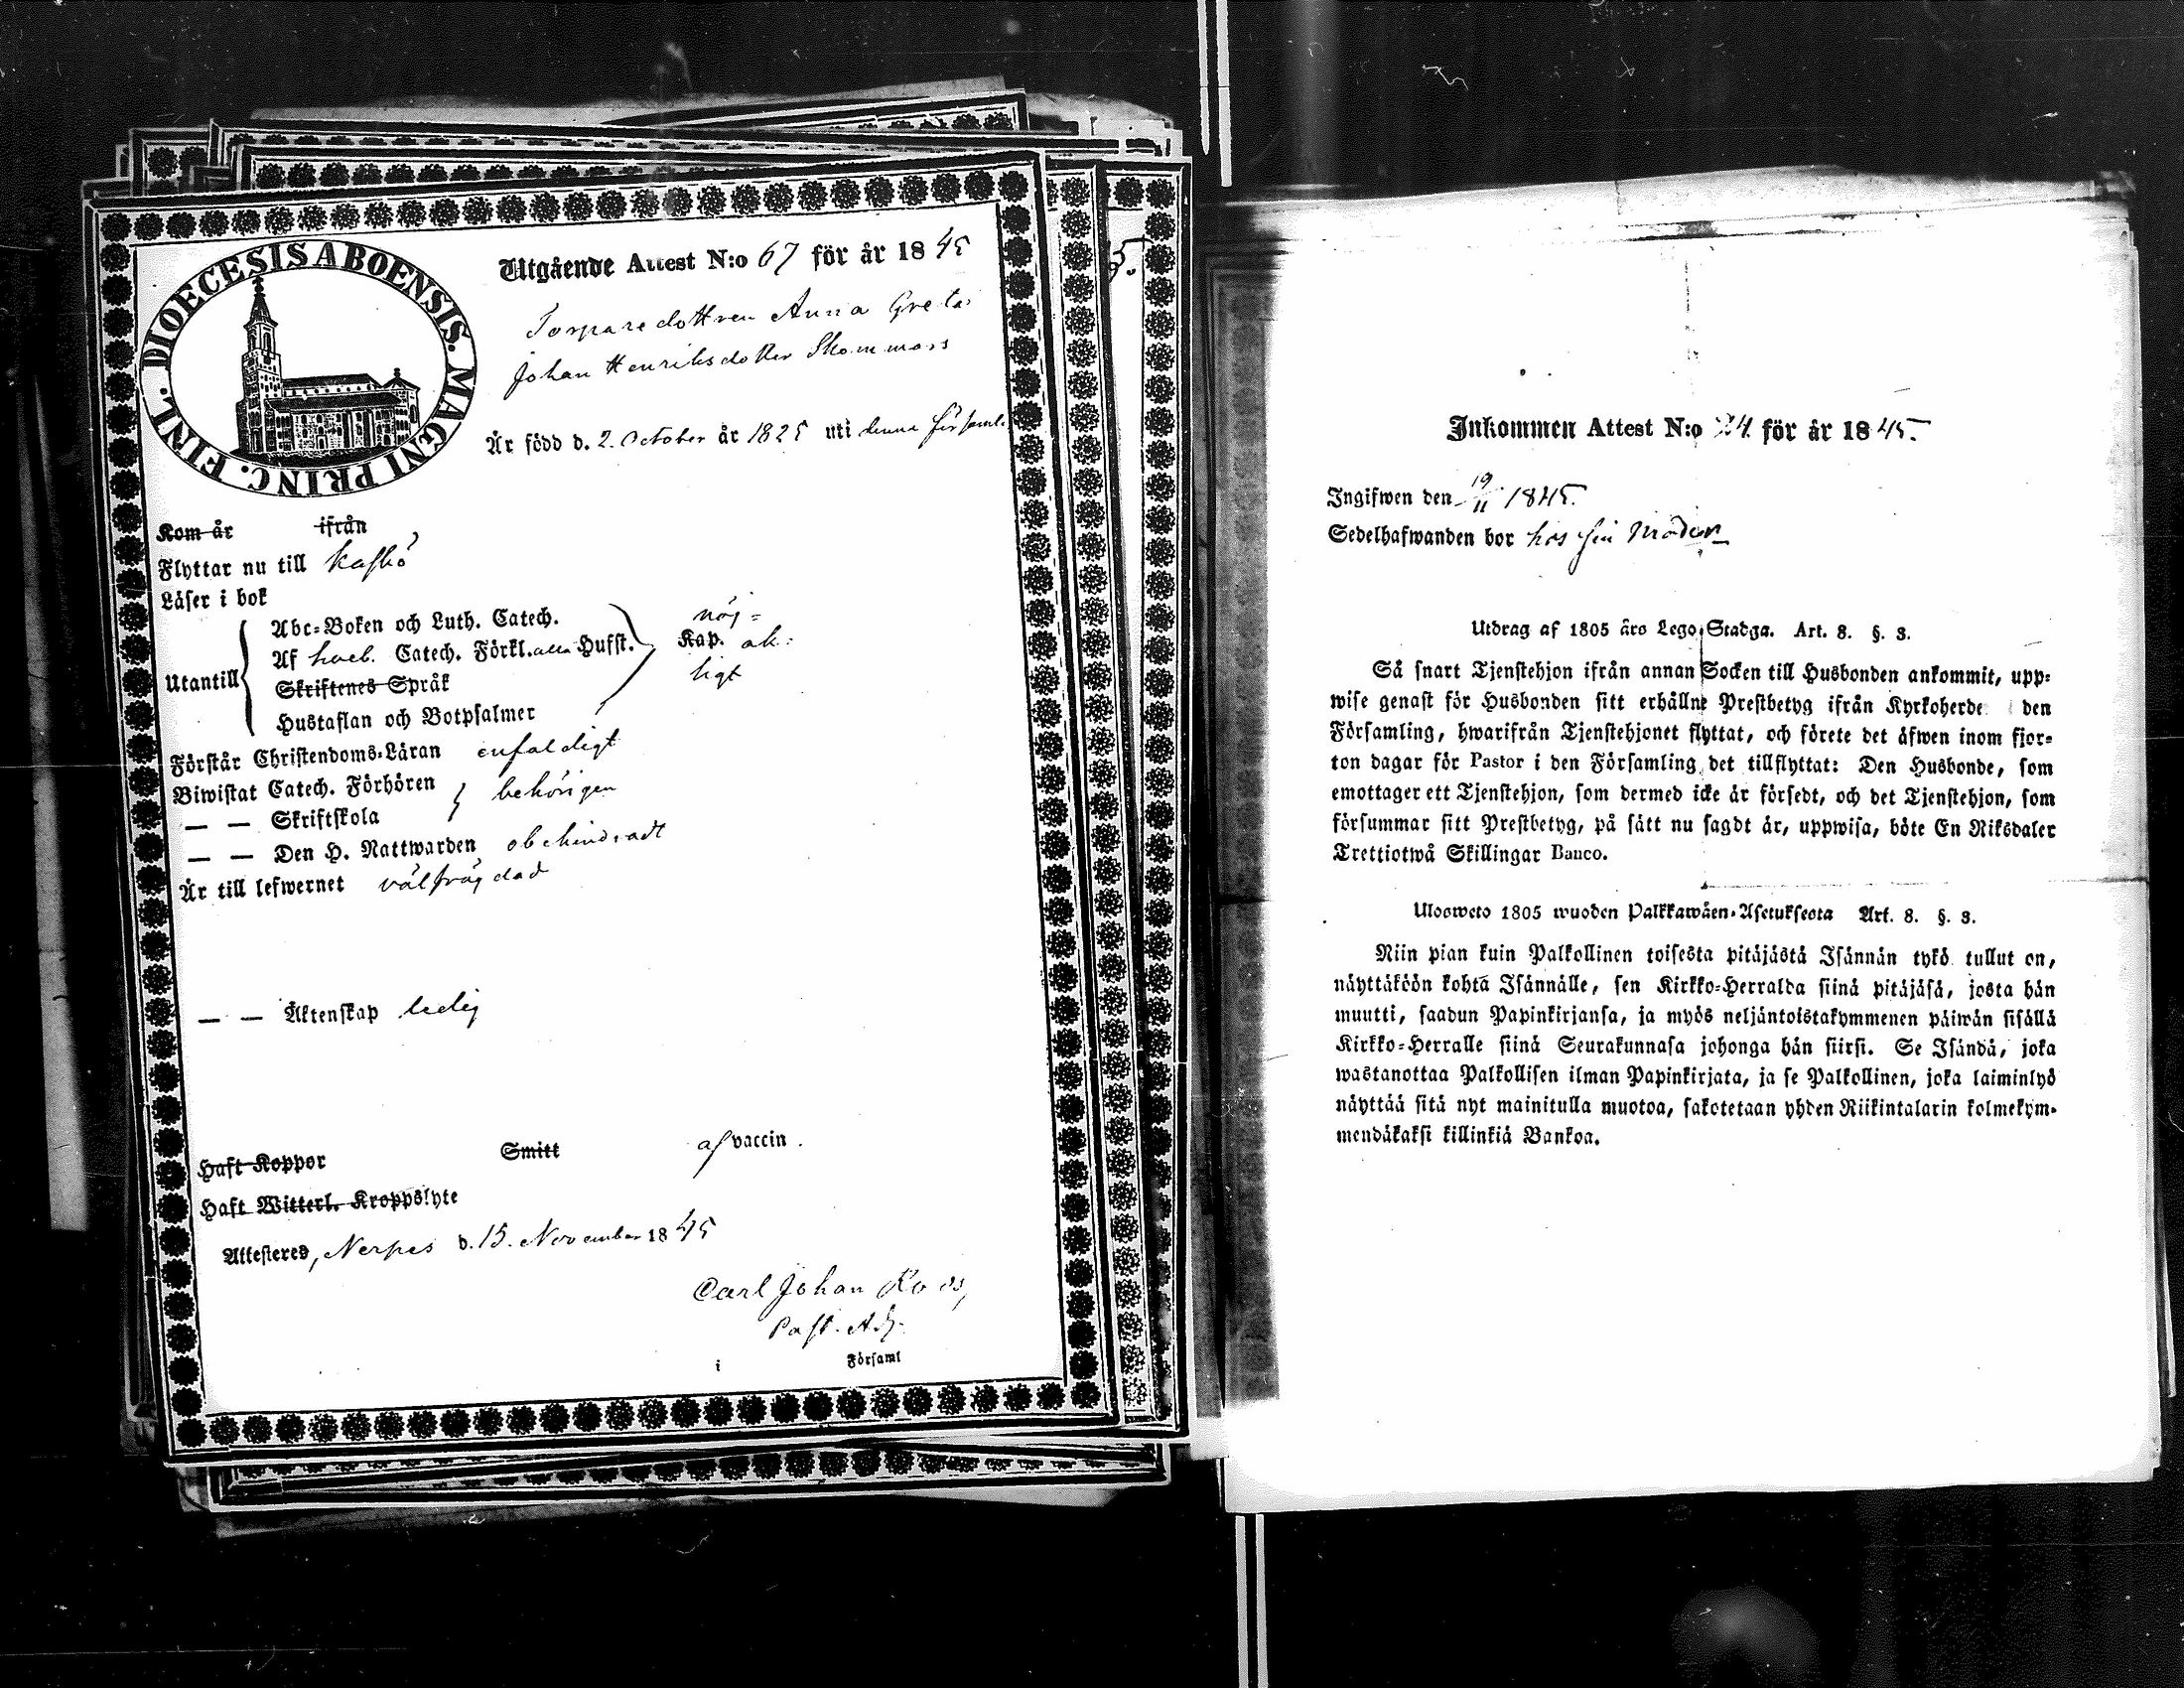 DIOECESIS ABOENSIS. MAGNI PRINC. FINL.
Utgående Attest N:o 67 för år 1845
Torparedottren Anna Greta
Johan Henriksdotter Skommars
Är född d. 2. October år 1825 uti denna församl.
Kom år ifrån
Flyttar nu till Kaskö
Läser i bok
Utantill
Abc-Boken och Luth. Catech.
Af Catech. Förkl. alla Hufst.
Skriftenes Språk
Hustaflan och Botpsalmer
nöj-
Kap. ak-
ligt
Förstår Christendoms-Läran enfaldigt
Biwistat Catech. Förhören
— — Skriftskola
behörigen
— — Den H. Nattwarden obehindradt
Är till lefwernet välfrägdad
— — Äktenskap ledig
Haft Koppor Smitt af vaccin.
Haft Witterl. Kroppslyte
Attesteres, Nerpes d. 15. November 1845
Carl Johan Roos,
Past. Adj.
i Församl
5.
Inkommen Attest N:o 24 för år 1845.
Ingifwen den 19/11 1845.
Sedelhafwanden bor hos sin Moder
Utdrag af 1805 års Lego-Stadga. Art. 8. §. 3.
Så snart Tjenstehjon ifrån annan Socken till Husbonden ankommit, upp-
wise genast för Husbonden sitt erhållne Prestbetyg ifrån Kyrkoherde den
Församling, hwarifrån Tjenstehjonet flyttat, och förete det äfwen inom fjor-
ton dagar för Pastor i den Församling det tillflyttat: Den Husbonde, som
emottager ett Tjenstehjon, som dermed icke är försedt, och det Tjenstehjon, som
försummar sitt Prestbetyg, på sätt nu sagdt är, uppwisa, böte En Riksdaler
Trettiotwå Skillingar Banco.
Ulosweto 1805 wuoden Palkkawäen-Asetuksesta Art. 8. §. 3.
Niin pian kuin Palkollinen toisesta pitäjästä Isännän tykö tullut on,
näyttäköön kohta Isännälle, sen Kirkko-Herralda siinä pitäjäsä, josta hän
muutti, saadun Papinkirjansa, ja myös neljäntoistakymmenen päiwän sisällä
Kirkko-Herralle siinä Seurakunnasa johonga hän siirsi. Se Isändä, joka
wastanottaa Palkollisen ilman Papinkirjata, ja se Palkollinen, joka laiminlyö
näyttää sitä nyt mainitulla muotoa, sakotetaan yhden Riikintalarin kolmekym-
mendäkaksi killinkiä Bankoa.